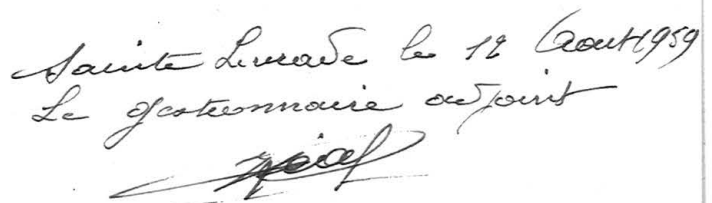 Sainte Livrade le 12 Aout 1959
Le gestionnaire adjoint